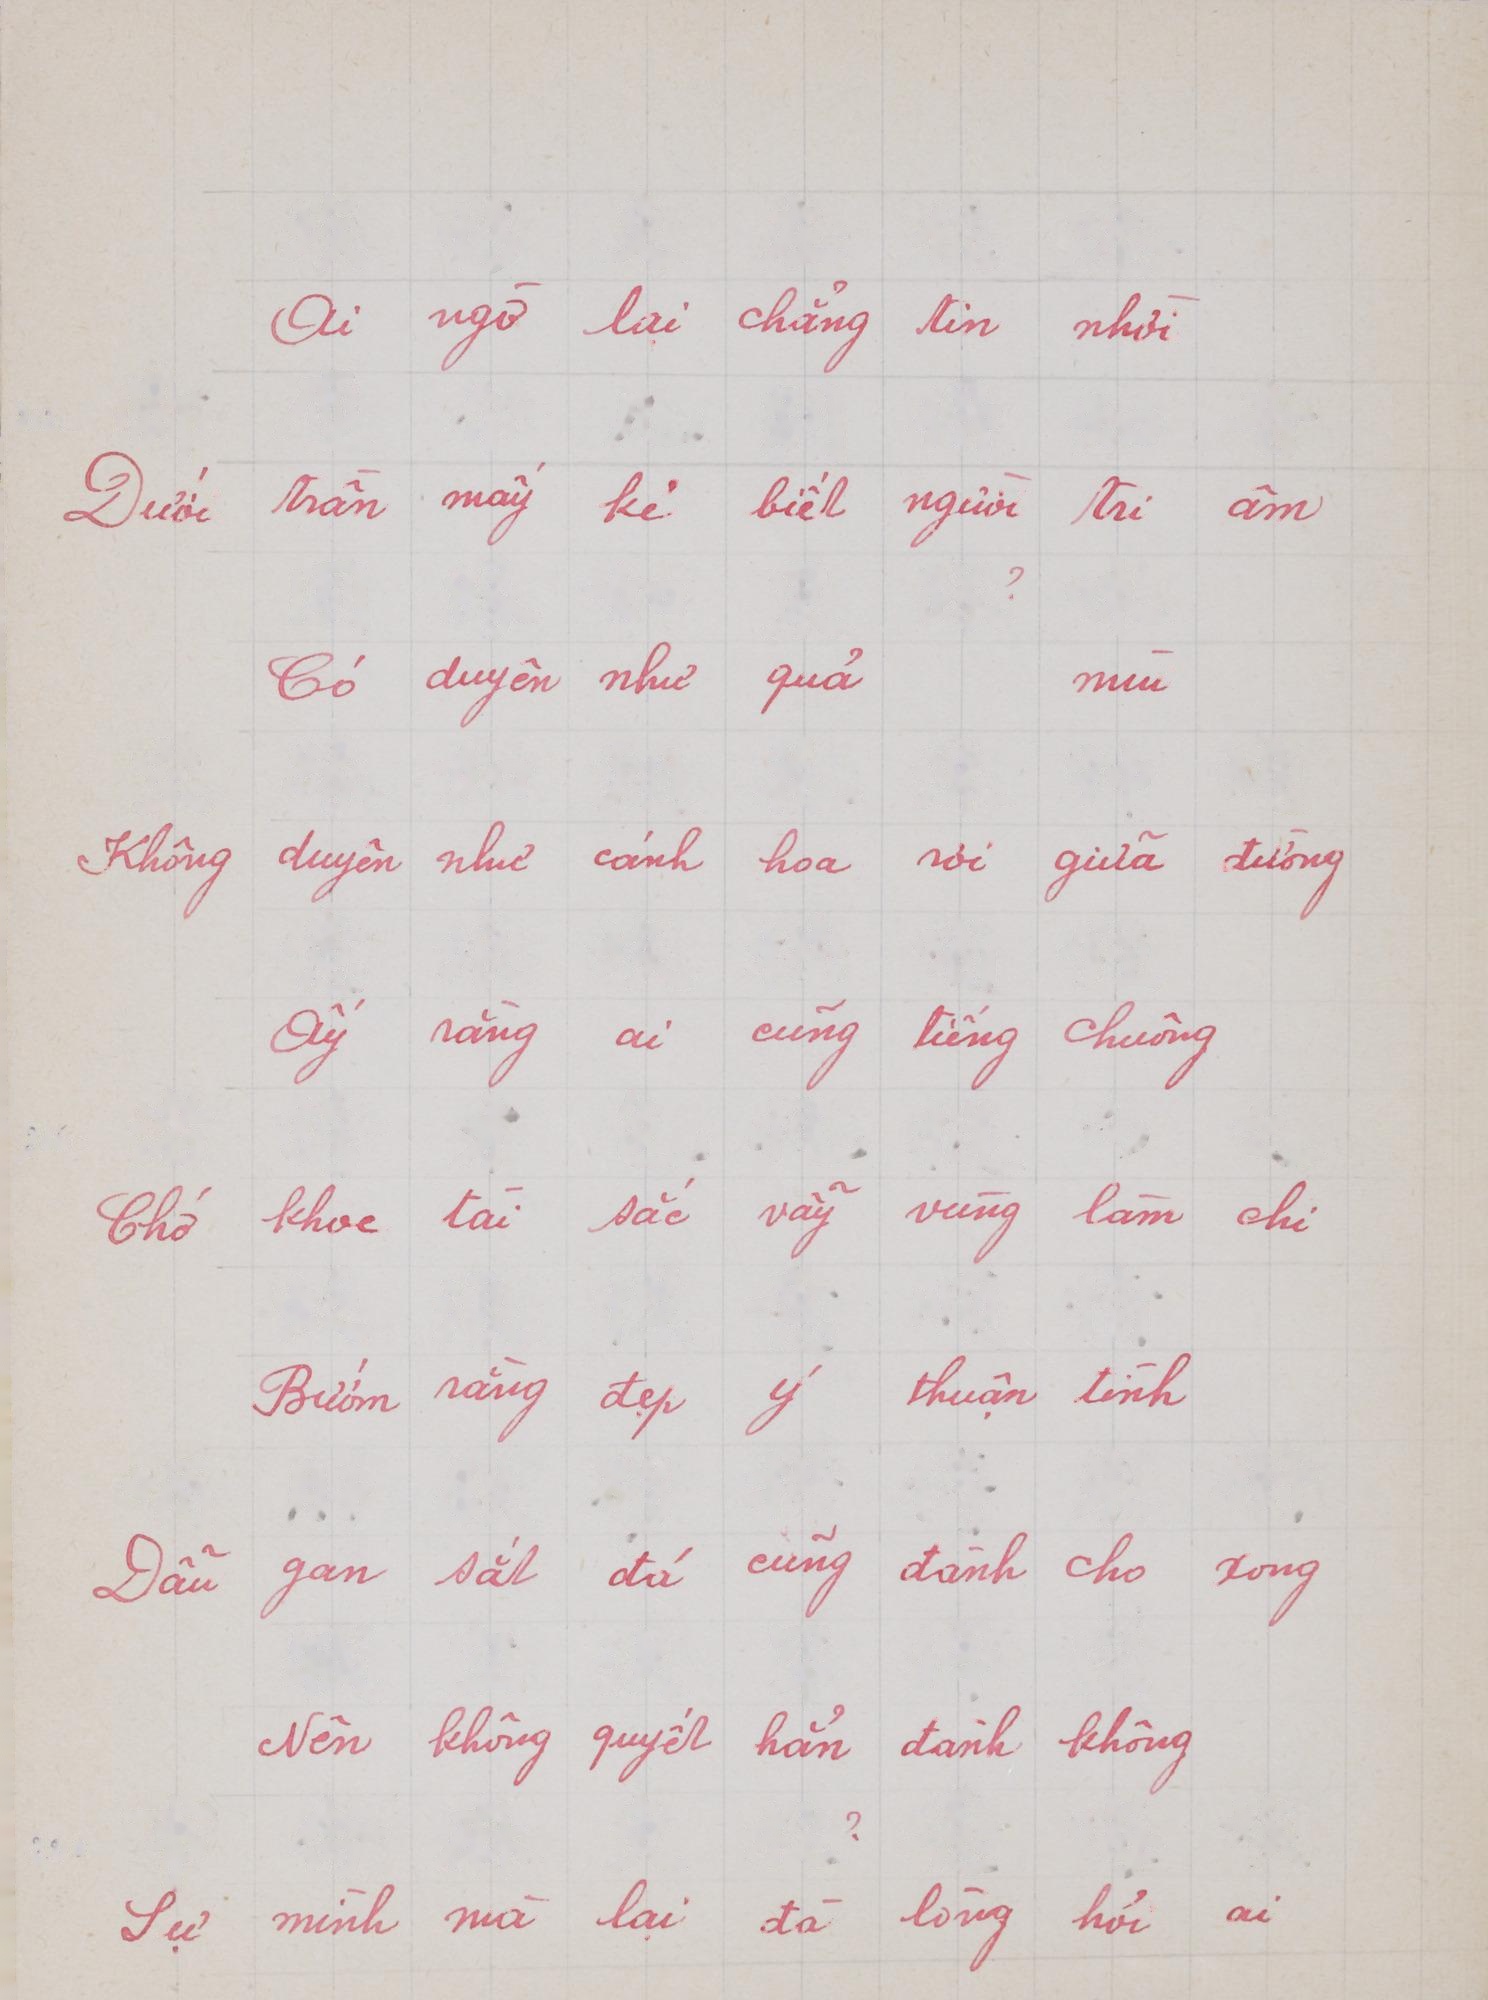 Ai ngờ lại chẳng tin nhời
Dưới trần mấy kẻ biết người tri âm
?
Có duyên như quả mùi
Không duyên như cánh hoa rơi giữa đường
Ấy rằng ai cũng tiếng chuông
Chớ khoe tài sắc vẫy vùng làm chi
Bướm rằng đẹp ý thuận tình
Dẫu gan sắt đá cũng đành cho xong
Nên không quyết hẳn đành không
?
Sự mình mà lại đà lòng hỏi ai